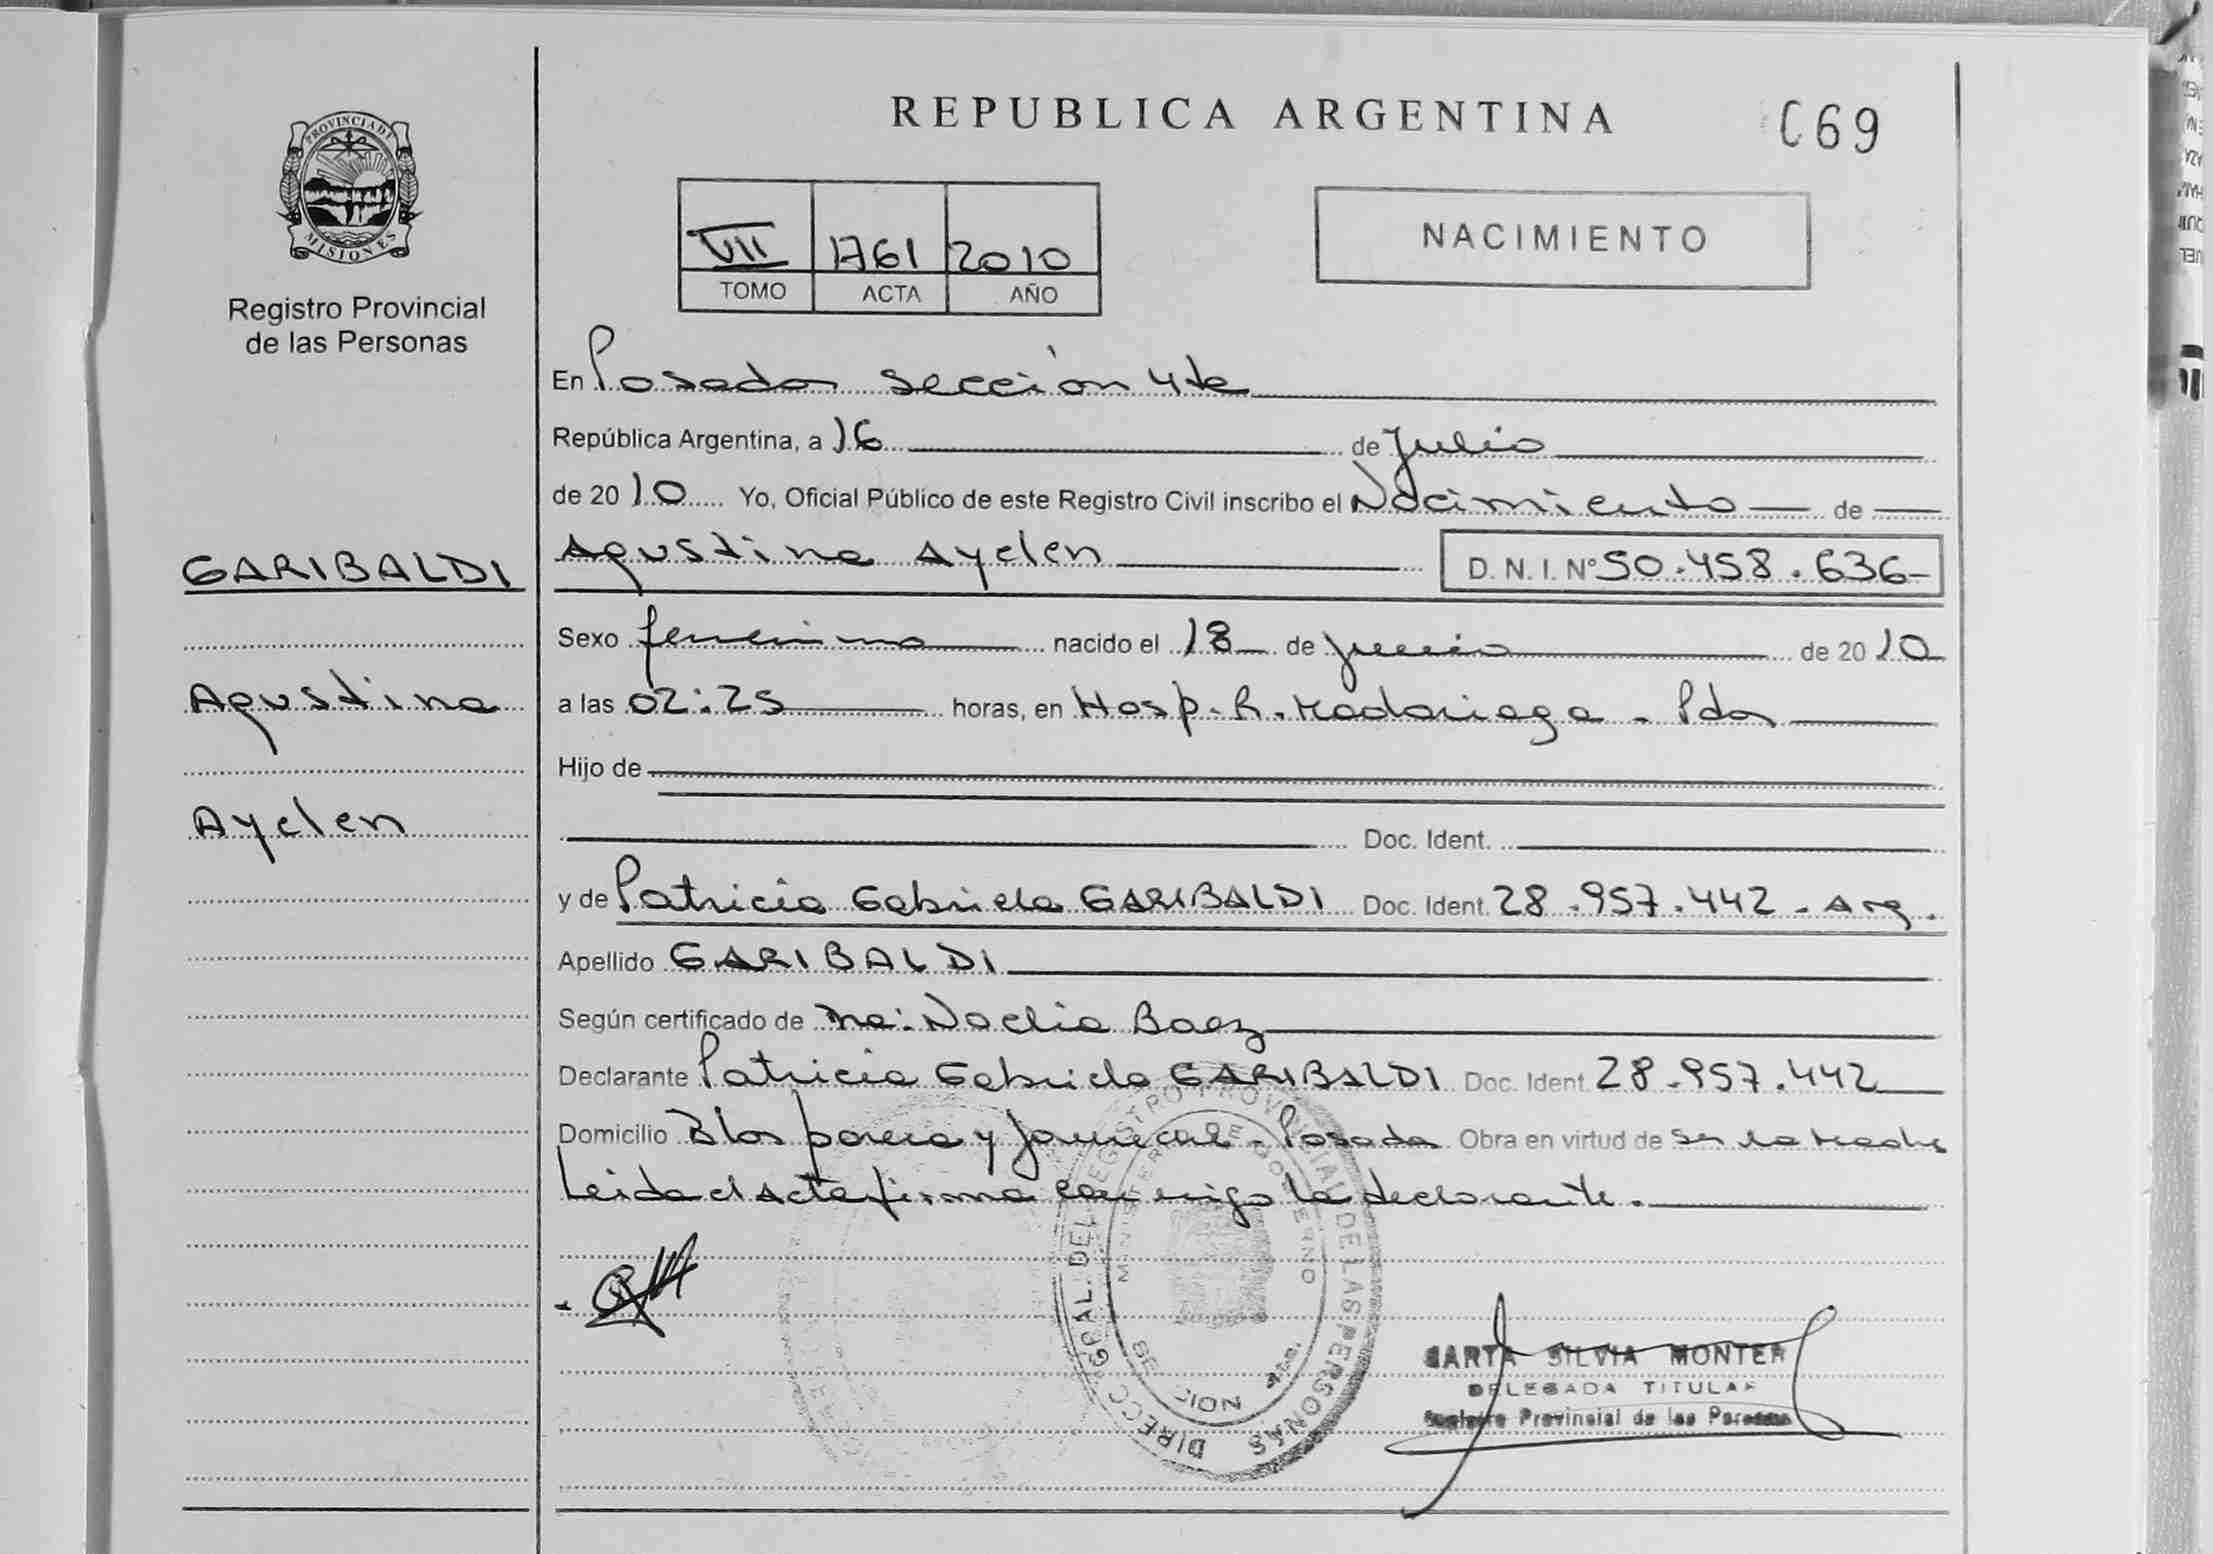 REPUBLICA ARGENTINA
C69
PROVINCIA DE
MISIONES
Registro Provincial
de las Personas
VII 1761 2010
TOMO ACTA AÑO
NACIMIENTO
En Posadas sección 4ta
República Argentina, a 16 de Julio
de 2010 Yo, Oficial Público de este Registro Civil inscribo el Nacimiento de
GARIBALDI
Agustina Ayelen D. N. I. Nº 50.458.636-
Sexo femenino nacido el 18 de junio de 2010
Agustina
a las 02:25 horas, en Hosp. R. Madariaga - Pdas
Hijo de
Ayelen
Doc. Ident.
y de Patricia Gabriela GARIBALDI Doc. Ident. 28.957.442 - Arg.
Apellido GARIBALDI
Según certificado de Noelia Baez
Declarante Patricia Gabriela GARIBALDI Doc. Ident 28.957.442
Domicilio Blas parera y Posadas Obra en virtud de ser la Madre
Leida el Acta firma conmigo la declarante.
DIRECC. GRAL. DEL REGISTRO PROVINCIAL DE LAS PERSONAS
MINISTERIO DE GOBIERNO
SILVIA MONTER
DELEGADA TITULAR
Registro Provincial de las Personas